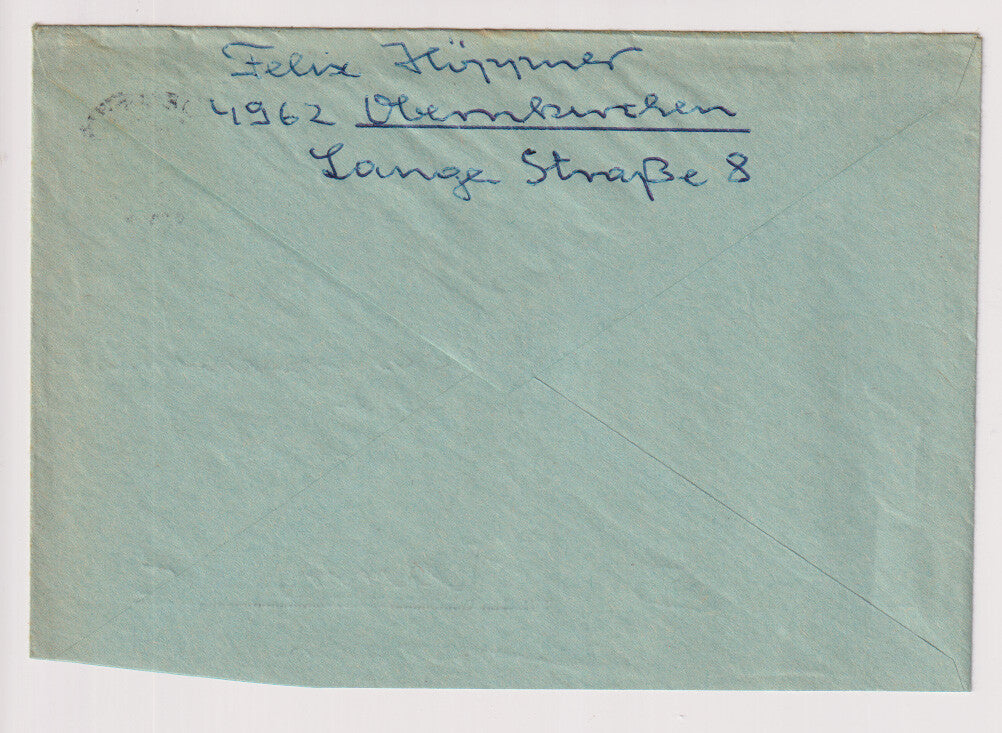 Felix Höppner
4962 Obernkirchen
Lange Straße 8